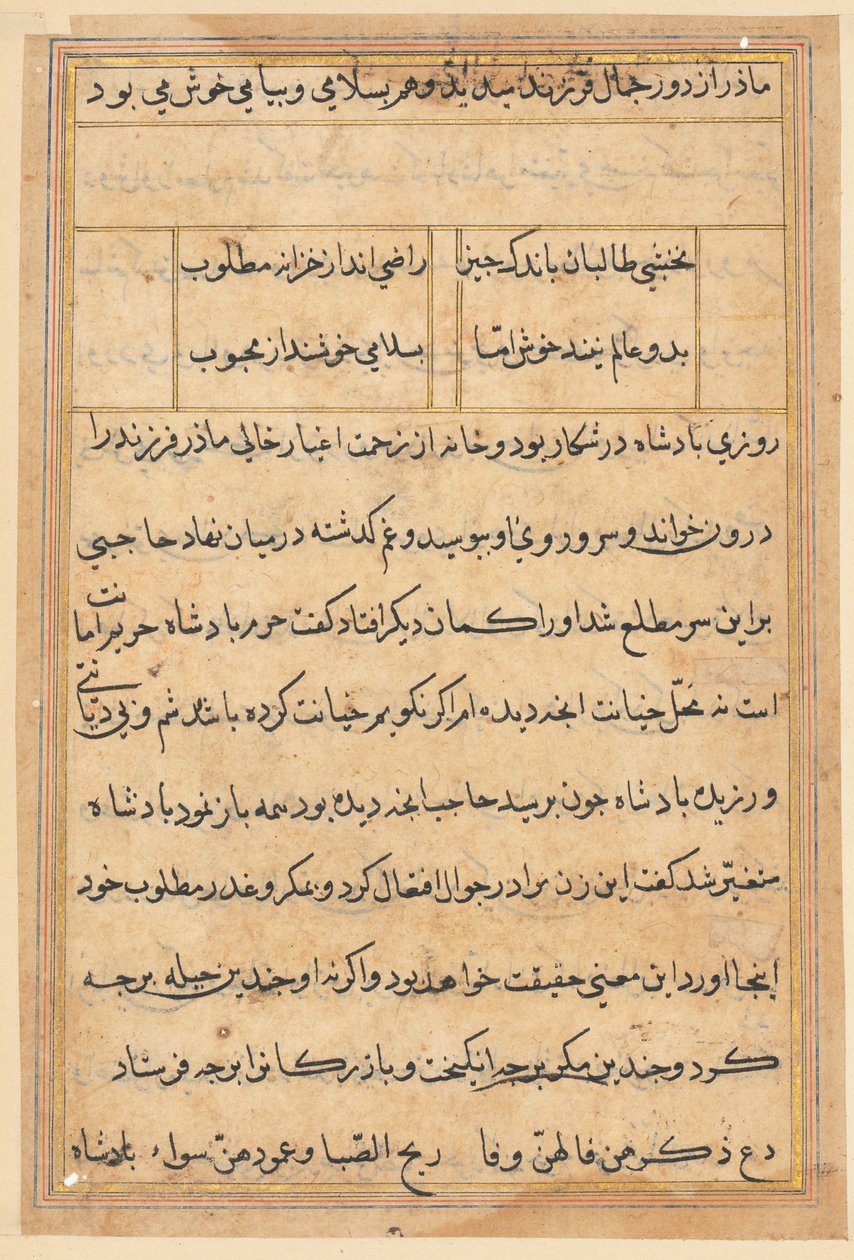 ماذر از دور جمال فرزند میدید و هم بسلامی و بیامی خوش می بود
نخشبی طالبان باندک جیز راضی اند از خزانه مطلوب
بدو عالم نیند خوش امّا بسلامی خوشند از محبوب
روزی بادشاه در شکار بود و خانه از زحمت اغیار خالی ماذر فرزند را
درون خواند و سر و روی او ببوسید و غم کذشته در میان نهاد حاجبی
براین سر مطلع شد او را کمان دیکر افتاد کفت حرم بادشاه حریم امانت
است نه محلّ خیانت انجه دیده ام اکر نکویم خیانت کرده باشم و بی دیانتی
ورزیده بادشاه جون برسید حاجب انجه دیده بود همه باز نمود بادشاه
متغیّر شد کفت این زن مرا در جوال افتعال کرد و بمکر و غدر مطلوب خود
اینجا اورد این معنی حقیقت خواهد بود و اکرنه او جندین حیله برجه
کرد و جندین مکر برجه انکیخت و بازرکانرا برجه فرستاد
دع ذکرهن فما لهنّ وفا ریح الصّبا و عهودهنّ سواء بادشاه